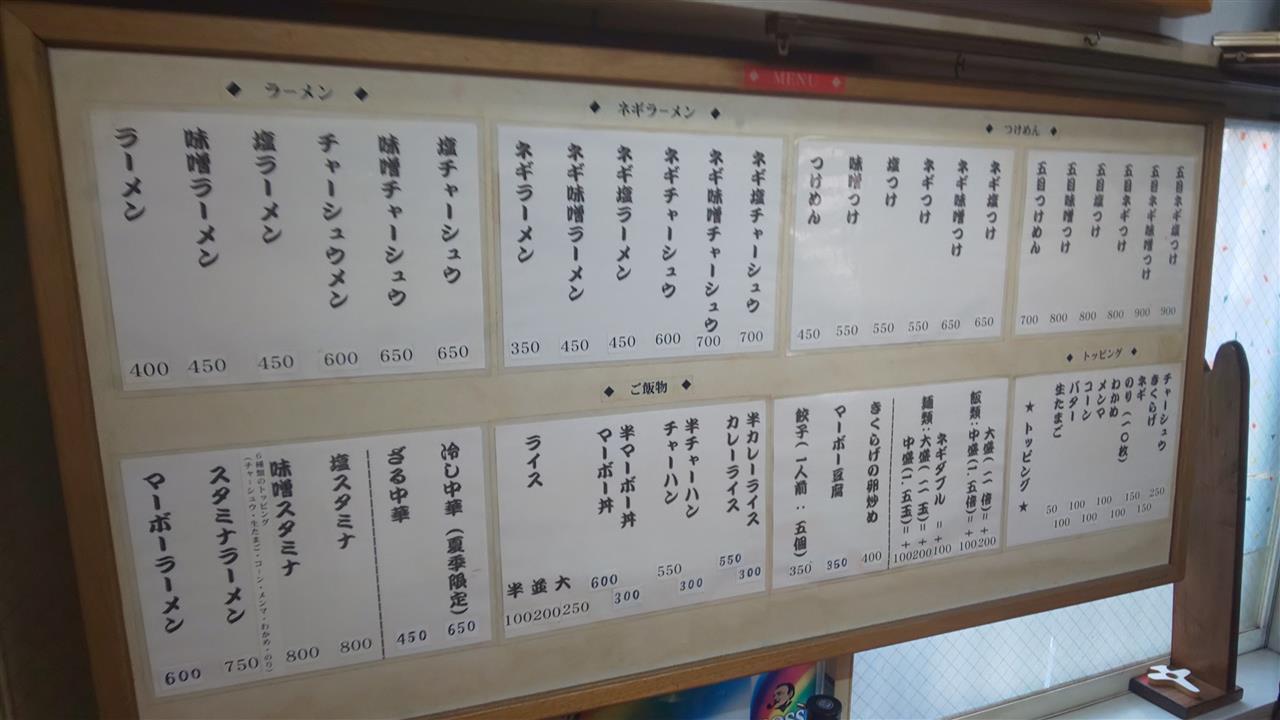 MENU
◆ ラーメン ◆
ラーメン 400
味噌ラーメン 450
塩ラーメン 450
チャーシュウメン 600
味噌チャーシュウ 650
塩チャーシュウ 650
◆ ネギラーメン ◆
ネギラーメン 350
ネギ味噌ラーメン 450
ネギ塩ラーメン 450
ネギチャーシュウ 600
ネギ味噌チャーシュウ 700
ネギ塩チャーシュウ 700
◆ つけめん ◆
つけめん 450
味噌つけ 550
塩つけ 550
ネギつけ 550
ネギ味噌つけ 650
ネギ塩つけ 650
五目つけめん 700
五目味噌つけ 800
五目塩つけ 800
五目ネギつけ 800
五目ネギ味噌つけ 900
五目ネギ塩つけ 900
マーボーラーメン 600
スタミナラーメン 750
6種類のトッピング
(チャーシュウ・生たまご・コーン・メンマ・わかめ・のり)
味噌スタミナ 800
塩スタミナ 800
ざる中華 450
冷し中華(夏季限定) 650
◆ ご飯物 ◆
ライス
半 並 大
100 200 250
マーボー丼 600
半マーボー丼 300
チャーハン 550
半チャーハン 300
カレーライス 550
半カレーライス 300
餃子(一人前:五個) 350
マーボー豆腐 350
きくらげの卵炒め 400
麺類:大盛(二玉)=+200
中盛(一・五玉)=+100
ネギダブル =+100
飯類:中盛(一・五倍)=+100
大盛(二倍)=+200
◆ トッピング ◆
★トッピング★
生たまご 50
バター 100
コーン 100
メンマ 100
わかめ 100
のり(一〇枚) 100
ネギ 150
きくらげ 150
チャーシュウ 250